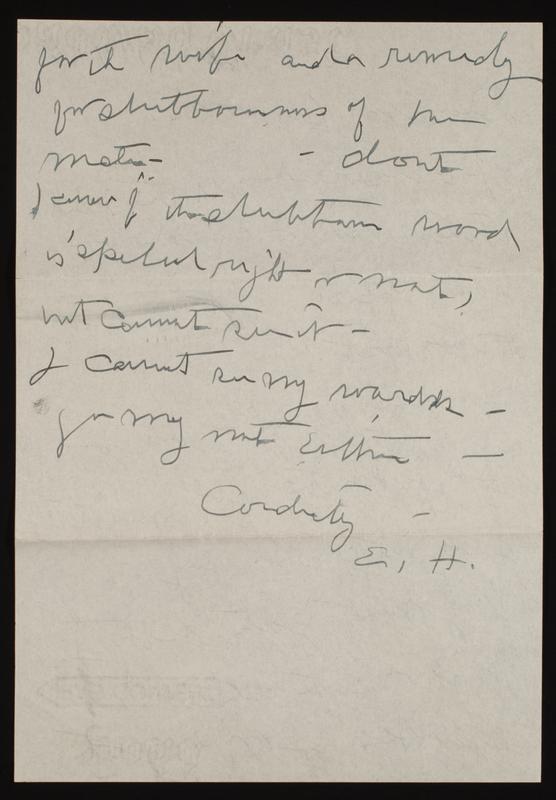 for the wife and a remedy
for stubbornness of the
mate - - dont
know if the stubborn word
is spelled right or not,
but cannot see it -
I cannot see my words -
my not either -
Cordially -
E. H.